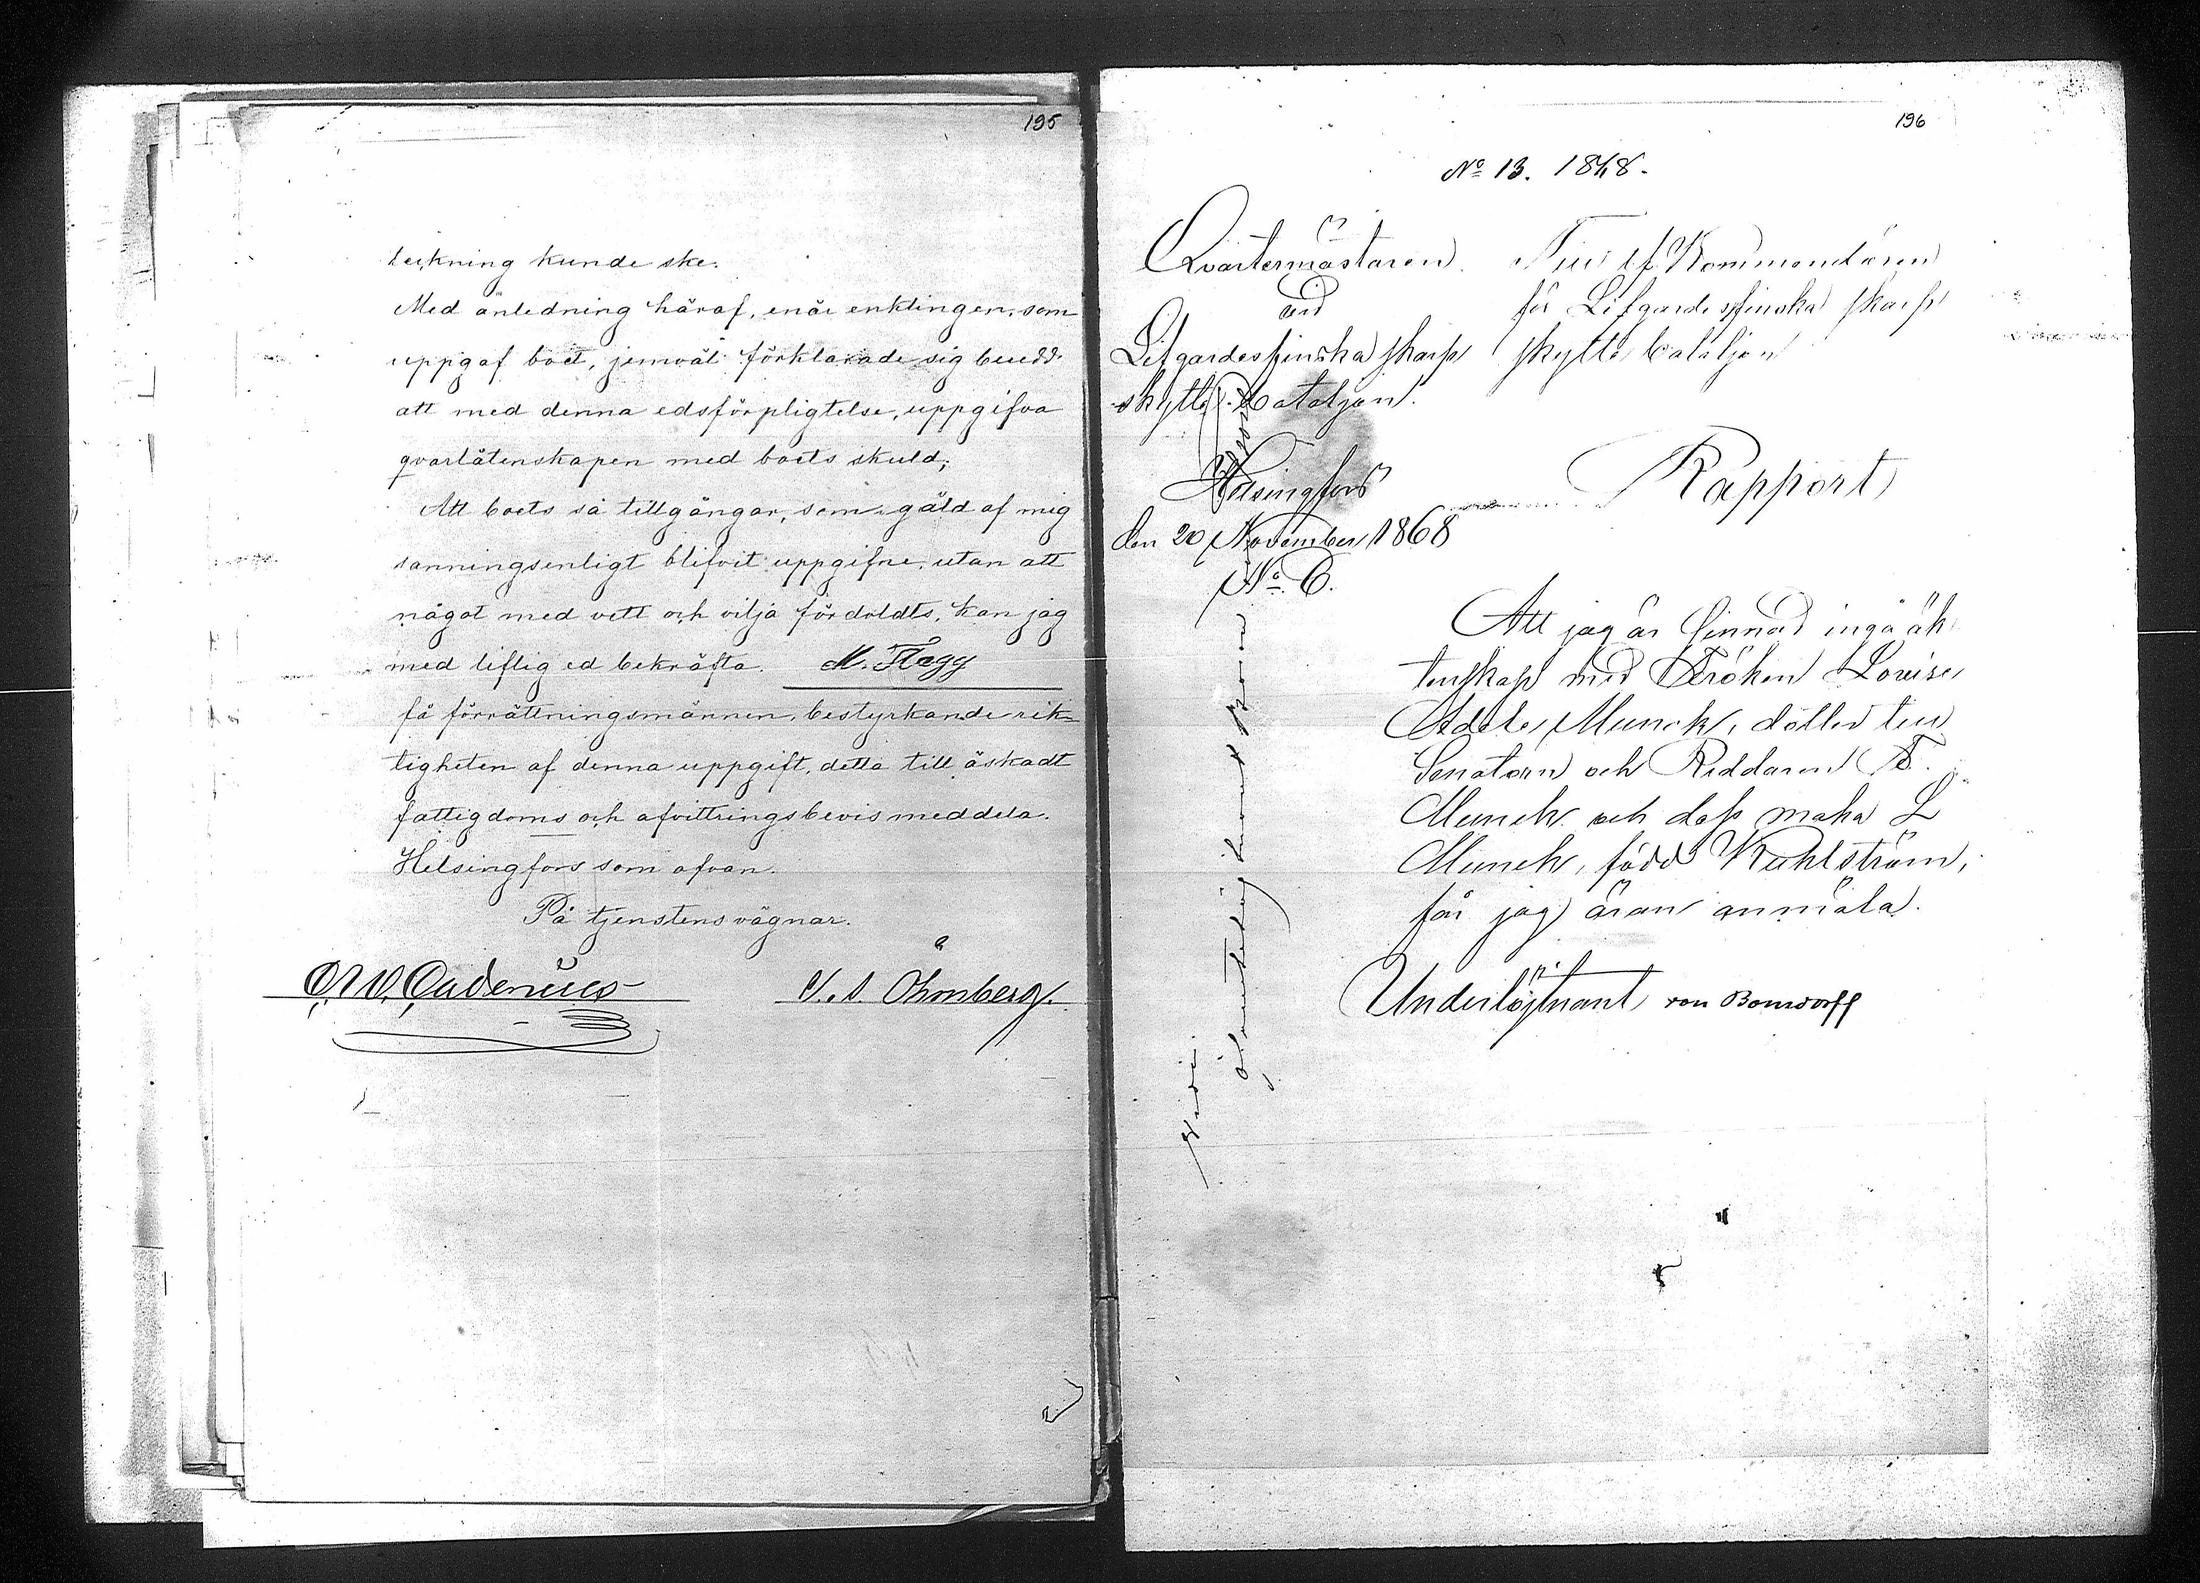 195
teckning kunde ske.
Med anledning häraf, enär enklingen, som
uppgaf boet, jemväl förklarade sig beredd
att med denna edsförpligtelse, uppgifva
qvarlåtenskapen med boets skuld;
Att boets så tillgångar, som gäld af mig
sanningsenligt blifvit uppgifne, utan att
något med vett och vilja fördoldts, kan jag
med liflig ed bekräfta. M. Flægg
få förrättningsmännen, bestyrkande rik-
tigheten af denna uppgift, detta till äskadt
fattigdoms och afvittringsbevis meddela.
Helsingfors som ofvan.
På tjenstens vägnar.
Cadenius
Öhmberg.
196
No 13. 1868.
Qvartermästaren
vid
Lifgardes finska skarp
skytte bataljon.
Helsingfors
den 20 November 1868
No 6.
Till tf Kommendören
för Lifgardes finska skarp
skytte bataljon
Rapport
Att jag är sinnad ingå äk
tenskap med Fröken Lovise
Adele Munck, dotter till
Senatorn och Riddaren F.
Munck och dess maka L
Munck, född Kuhlström,
får jag äran anmäla.
Underlöjtnant von Bonsdorff